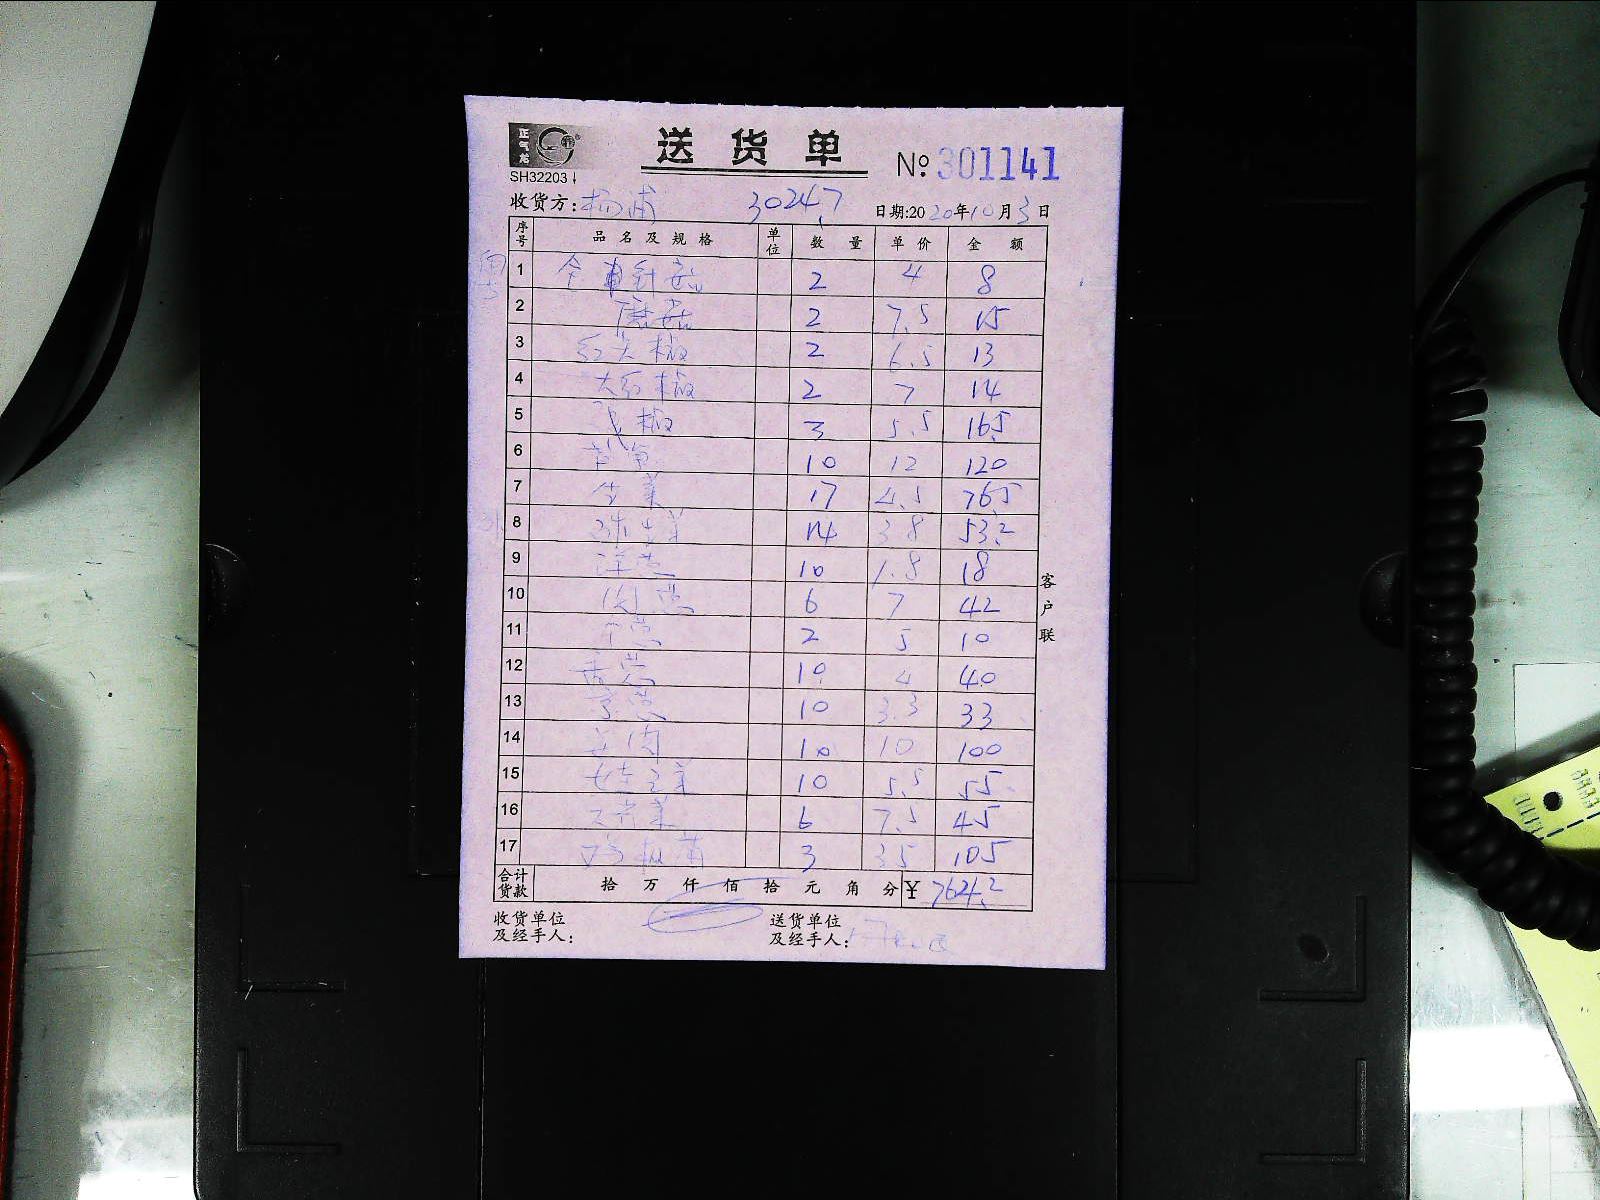 正气龙
送货单
SH32203
№ 301141
收货方: 杨浦 30247 日期:2020年10月3日
序号 品名及规格 单位 数量 单价 金额
1 金针菇 2 4 8
2 蘑菇 2 7.5 15
3 红尖椒 2 6.5 13
4 大红椒 2 7 14
5 椒 3 5.5 16.5
6 10 12 120
7 生菜 17 4.5 76.5
8 球生菜 14 3.8 53.2
9 洋葱 10 1.8 18
10 6 7 42
11 2 5 10
12 香葱 10 4 40
13 10 3.3 33
14 10 10 100
15 10 5.5 55
16 菜 6 7.5 45
17 3 35 105
合计货款 拾 万 仟 佰 拾 元 角 分 ¥ 764.2
客户联
收货单位及经手人: 送货单位及经手人: